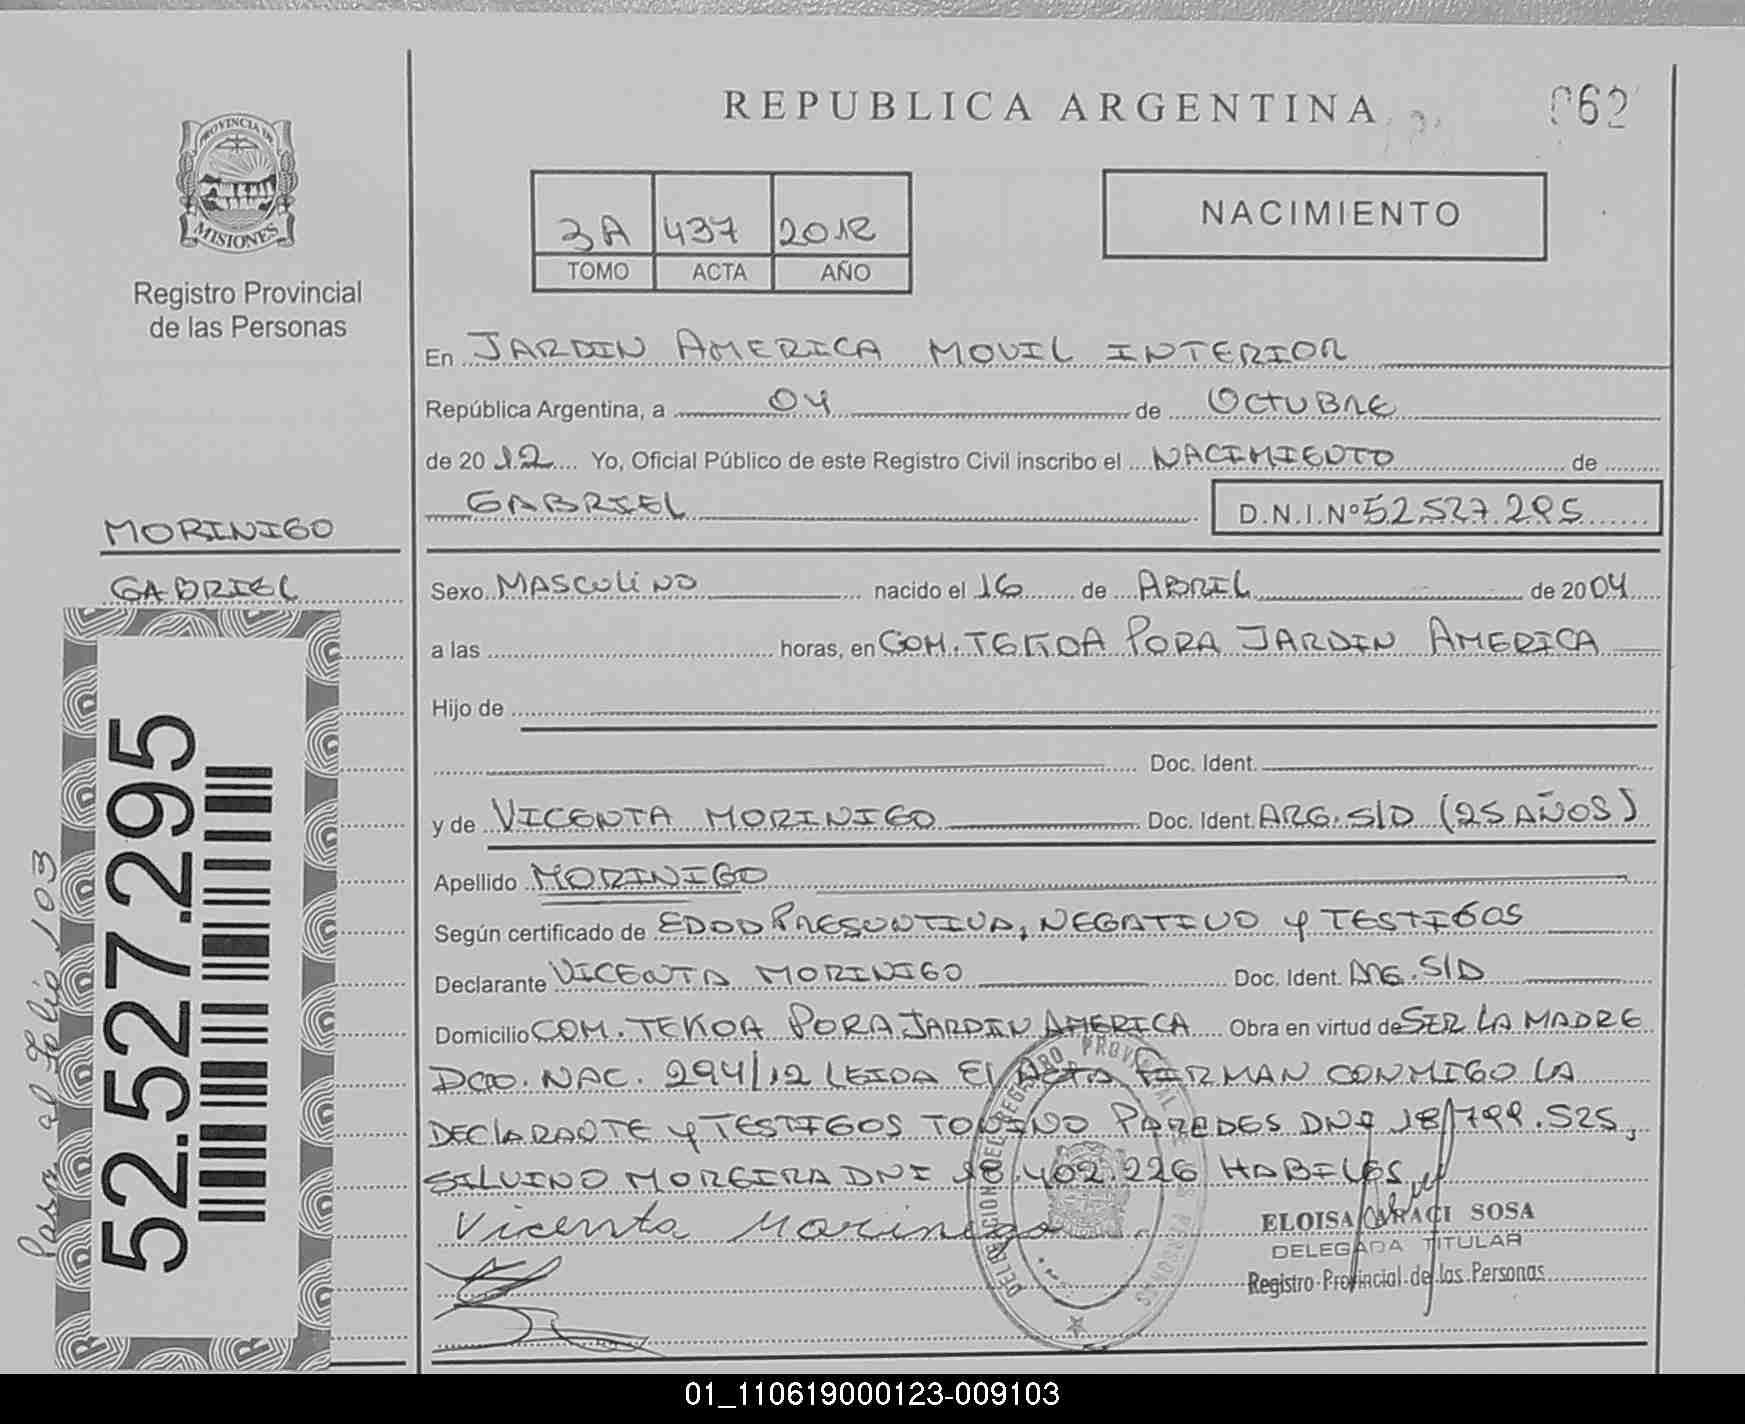 REPUBLICA ARGENTINA
062
PROVINCIA DE
MISIONES
Registro Provincial
de las Personas
3A 437 2012
TOMO ACTA AÑO
NACIMIENTO
En JARDIN AMERICA MOVIL INTERIOR
República Argentina, a 04 de OCTUBRE
de 20 12 Yo, Oficial Público de este Registro Civil inscribo el NACIMIENTO de
GABRIEL D.N.I.Nº 52.527.295
MORINIGO
GABRIEL
Sexo MASCULINO nacido el 16 de ABRIL de 2004
a las horas, en COM. TEKOA PORA JARDIN AMERICA
Hijo de
Doc. Ident.
y de VICENTA MORINIGO Doc. Ident. ARG. S/D (25 AÑOS)
Apellido MORINIGO
Según certificado de EDAD PRESUNTIVA, NEGATIVO Y TESTIGOS
Declarante VICENTA MORINIGO Doc. Ident. ARG. S/D
Domicilio COM. TEKOA PORA JARDIN AMERICA Obra en virtud de SER LA MADRE
DCTO. NAC. 294/12 LEIDA EL ACTA FIRMAN CONMIGO LA
DECLARANTE Y TESTIGOS PAREDES DNI 18.799.525,
SILVINO MOREIRA DNI 18.402.226 HABILES
Vicenta Morinigo
ELOISA ARACI SOSA
DELEGADA TITULAR
Registro Provincial de las Personas
52.527.295
Pasa al Folio 103
01_110619000123-009103